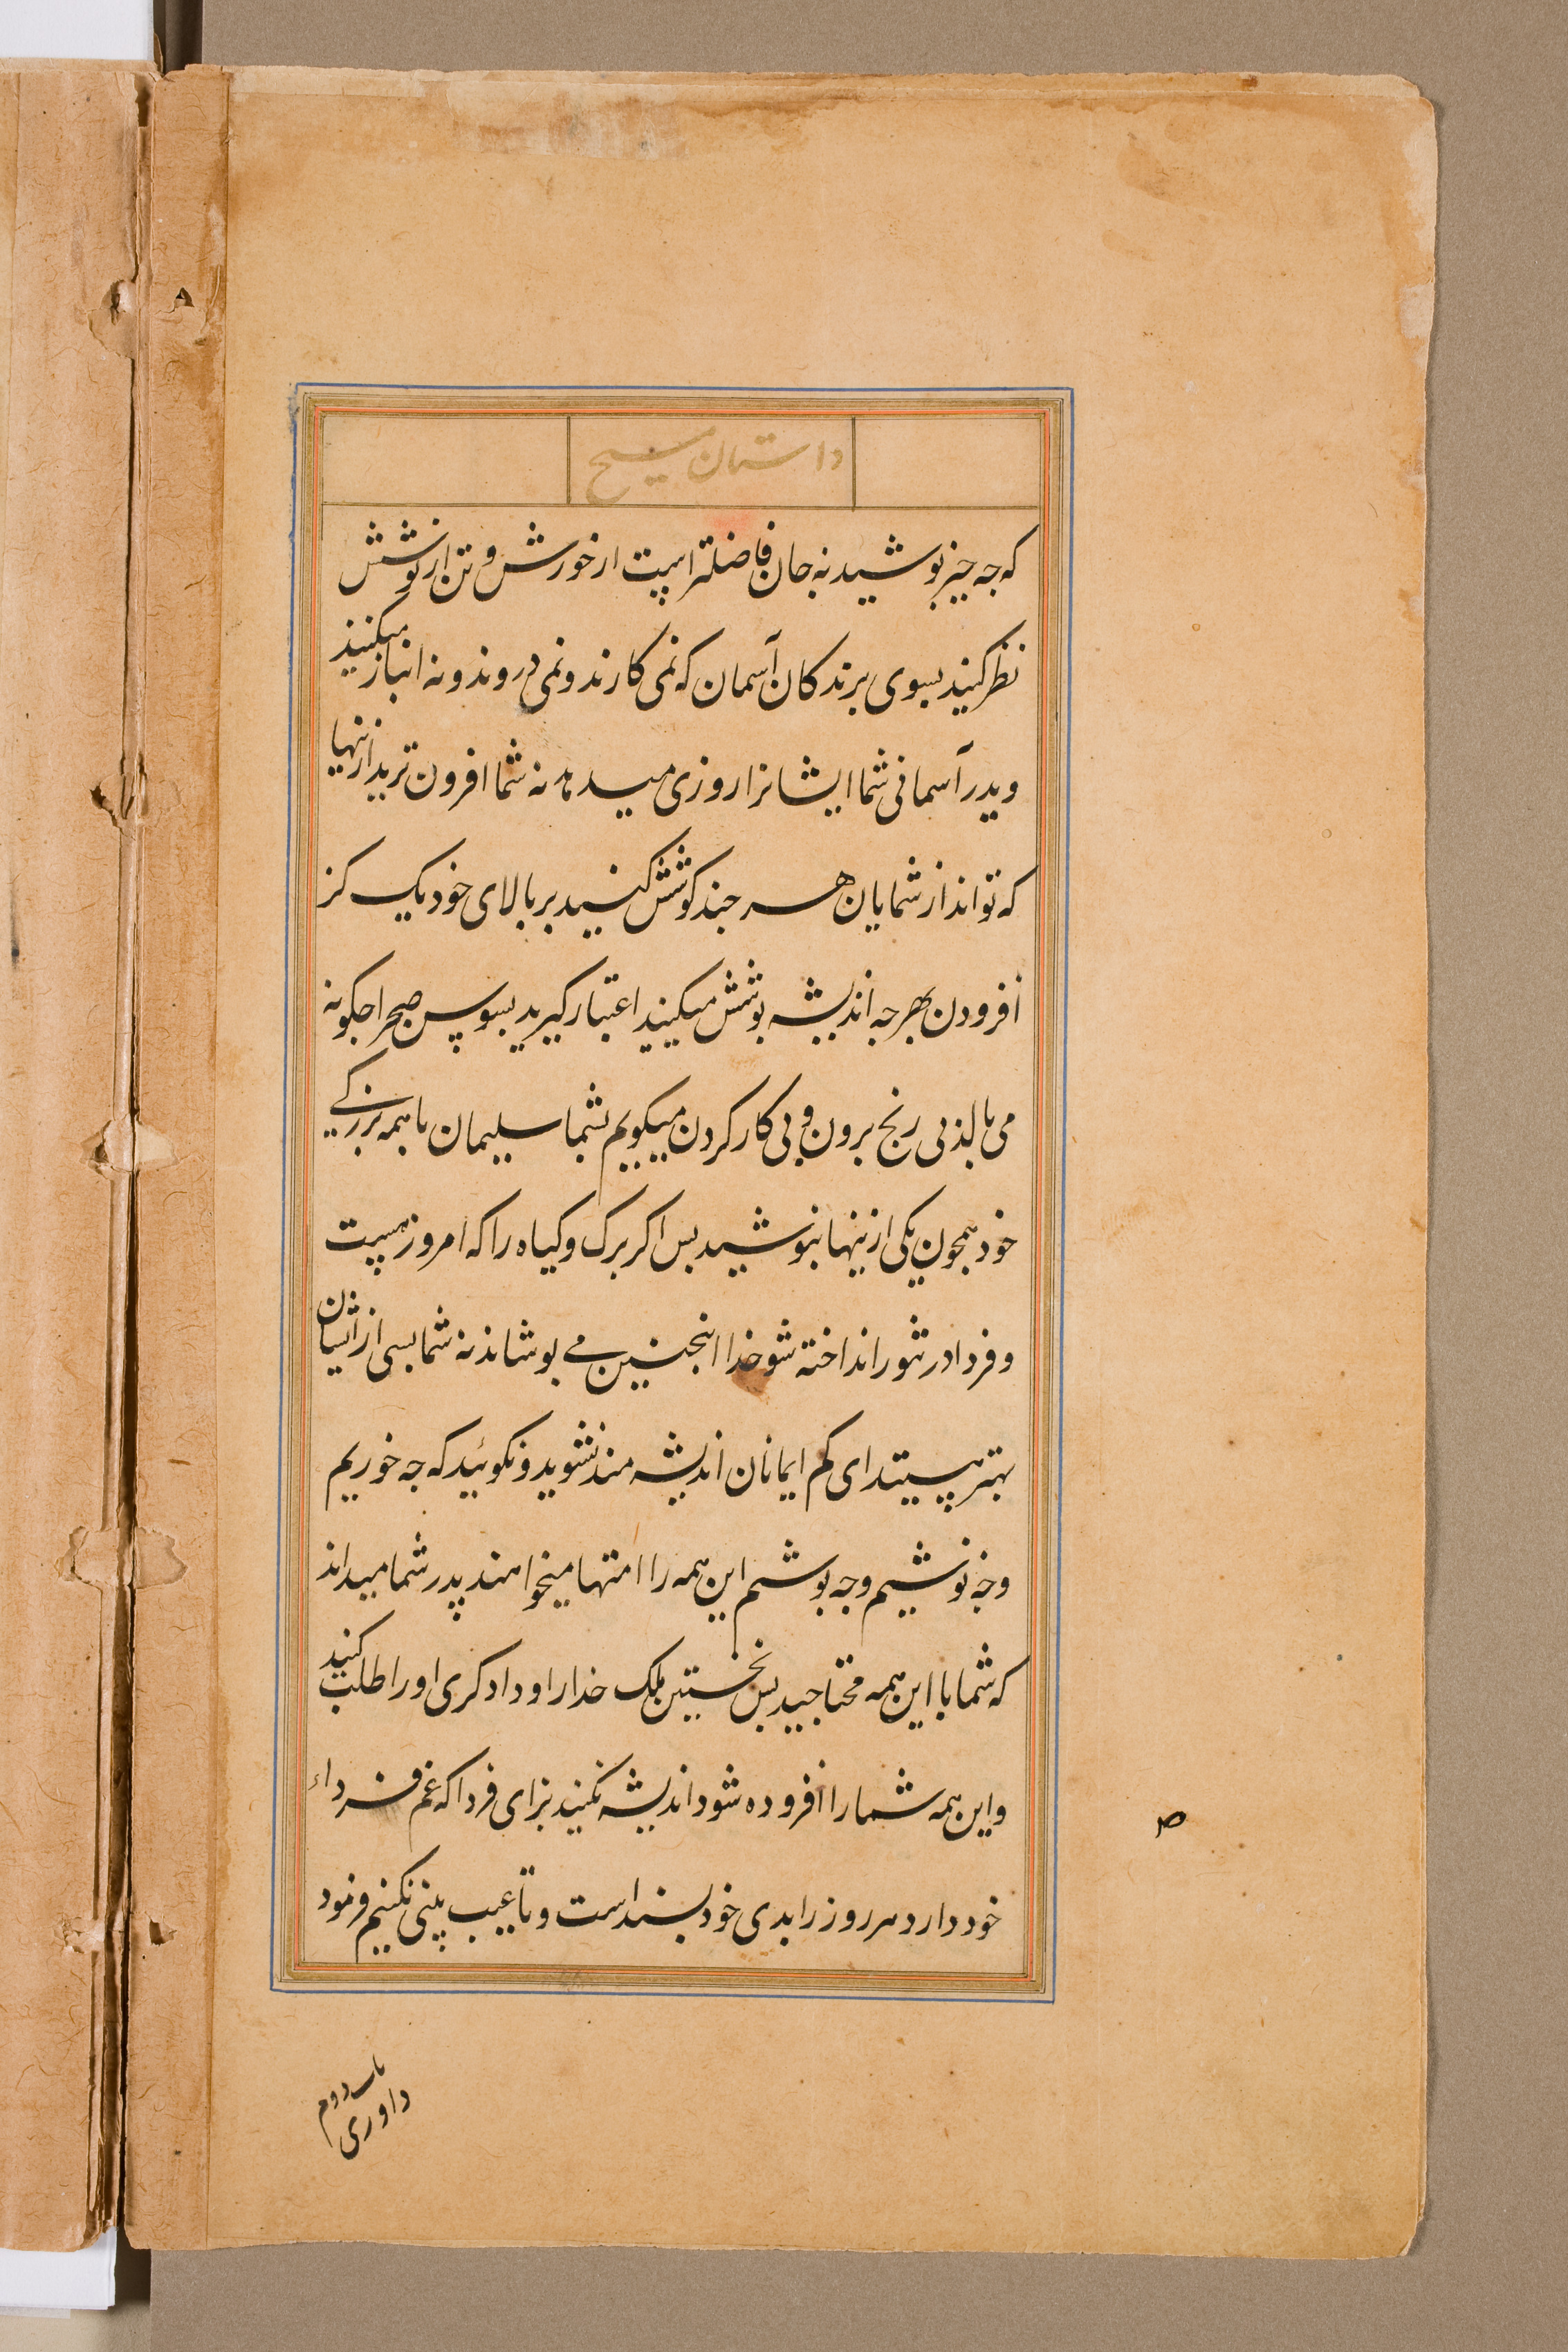 داستان مسیح
که جه جیز بوشید نه جان فاضلتر است از خورش و تن از بوشش
نظر کنید بسوی برندکان آسمان که نمی کارند و نمی دروند و نه انبار میکنند
و پدر آسمانی شما ایشانرا روزی میدهد نه شما افزون ترید ازینها
که تواند از شمایان هر جند کوشش کنید بر بالای خود یک کز
افزودن بهر جه اندیشه بوشش میکنید اعتبار کیرید بسوسن صحرا جکونه
می بالد بی رنج بردن و بی کار کردن میکویم بشما سلیمان با همه بزرکی
خود همجون یکی ازینها نبوشید بس اکر برک و کیاه را که امروز هست
و فردا در تنور انداخته شو خدا اینجنین می بوشاند نه شما بسی از ایشان
بهتر هستید ای کم ایمانان اندیشه مند نشوید و نکوئید که جه خوریم
و جه نوشیم و جه بوشیم این همه را امتها میخواهند پدر شما میداند
که شما با این همه محتاجید بس نخستین ملک خدا را و دادکری او را طلب کنید
و این همه شما را افزوده شود اندیشه نکنید برای فردا که غم فرداء
خود دارد هر روز را بدی خود بسند است و تا عیب بینی نکنیم فرمود
باب دوم
داوری